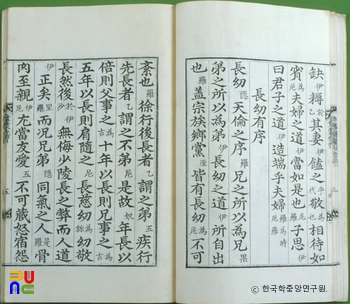 缺伊耨其妻饁之敬相待如
賓爲夫婦之道伊當如是也羅子思伊
曰君子之道伊造端乎夫婦羅
長幼有序
長幼隱天倫之序羅兄之所以爲兄果
弟之所以爲弟伊長幼之道伊所自出
也羅盖宗族鄕黨厓皆有長幼不可
紊也羅徐行後長者乙謂之弟五疾行
先長者乙謂之不弟尼是故奴年長以
倍則父事之爲古十年以長則兄事之爲古
五年以長則肩隨之尼長慈幼幼敬
長然後沙無侮少陵長之弊而人道
伊正矣里羅而况兄弟隱同氣之人是羅骨
肉至親尼尤當友愛五不可藏怒宿怨
ⓒ 한국학중앙연구원.